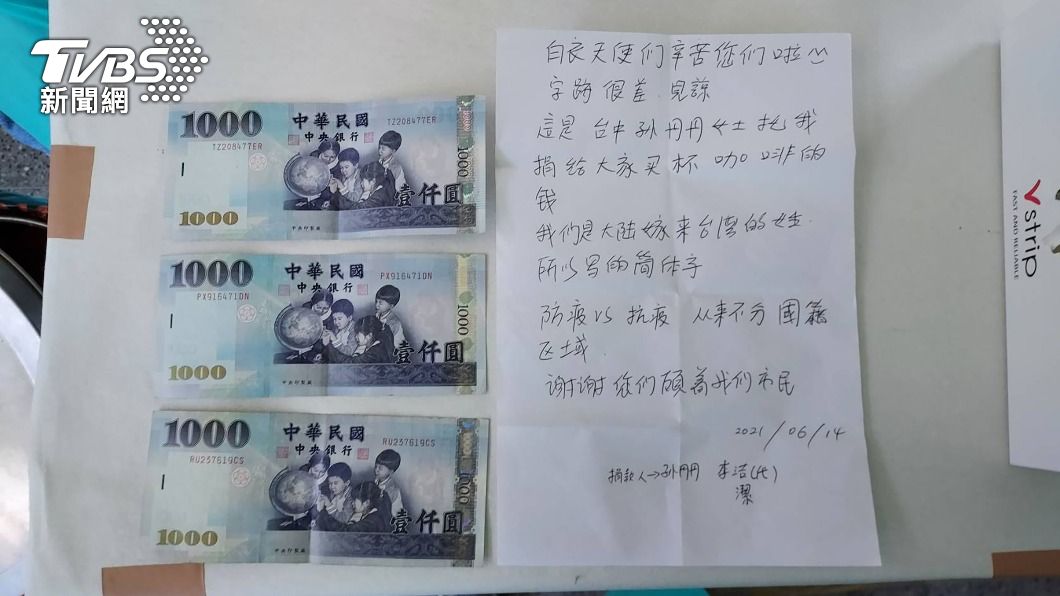 TVBS
新聞網
1000
中華民國
中央銀行
TZ208477ER
TZ208477ER
1000
壹仟圓
1000
中央印製廠
1000
中華民國
中央銀行
PX916471DN
PX916471DN
1000
壹仟圓
1000
中央印製廠
1000
中華民國
中央銀行
RU237619CS
RU237619CS
1000
壹仟圓
1000
中央印製廠
白衣天使们辛苦您们啦
字跡很差.見諒
這是台中孙丹丹女士托我
捐给大家买杯咖啡的
钱
我們是大陆嫁来台灣的女生.
所以写的简体字
防疫VS抗疫 从来不分國籍
区域.
谢谢您们顾着我们市民
2021/06/14
捐款人→孙丹丹 李洁(代)
潔
strip
FAST AND RELIABLE